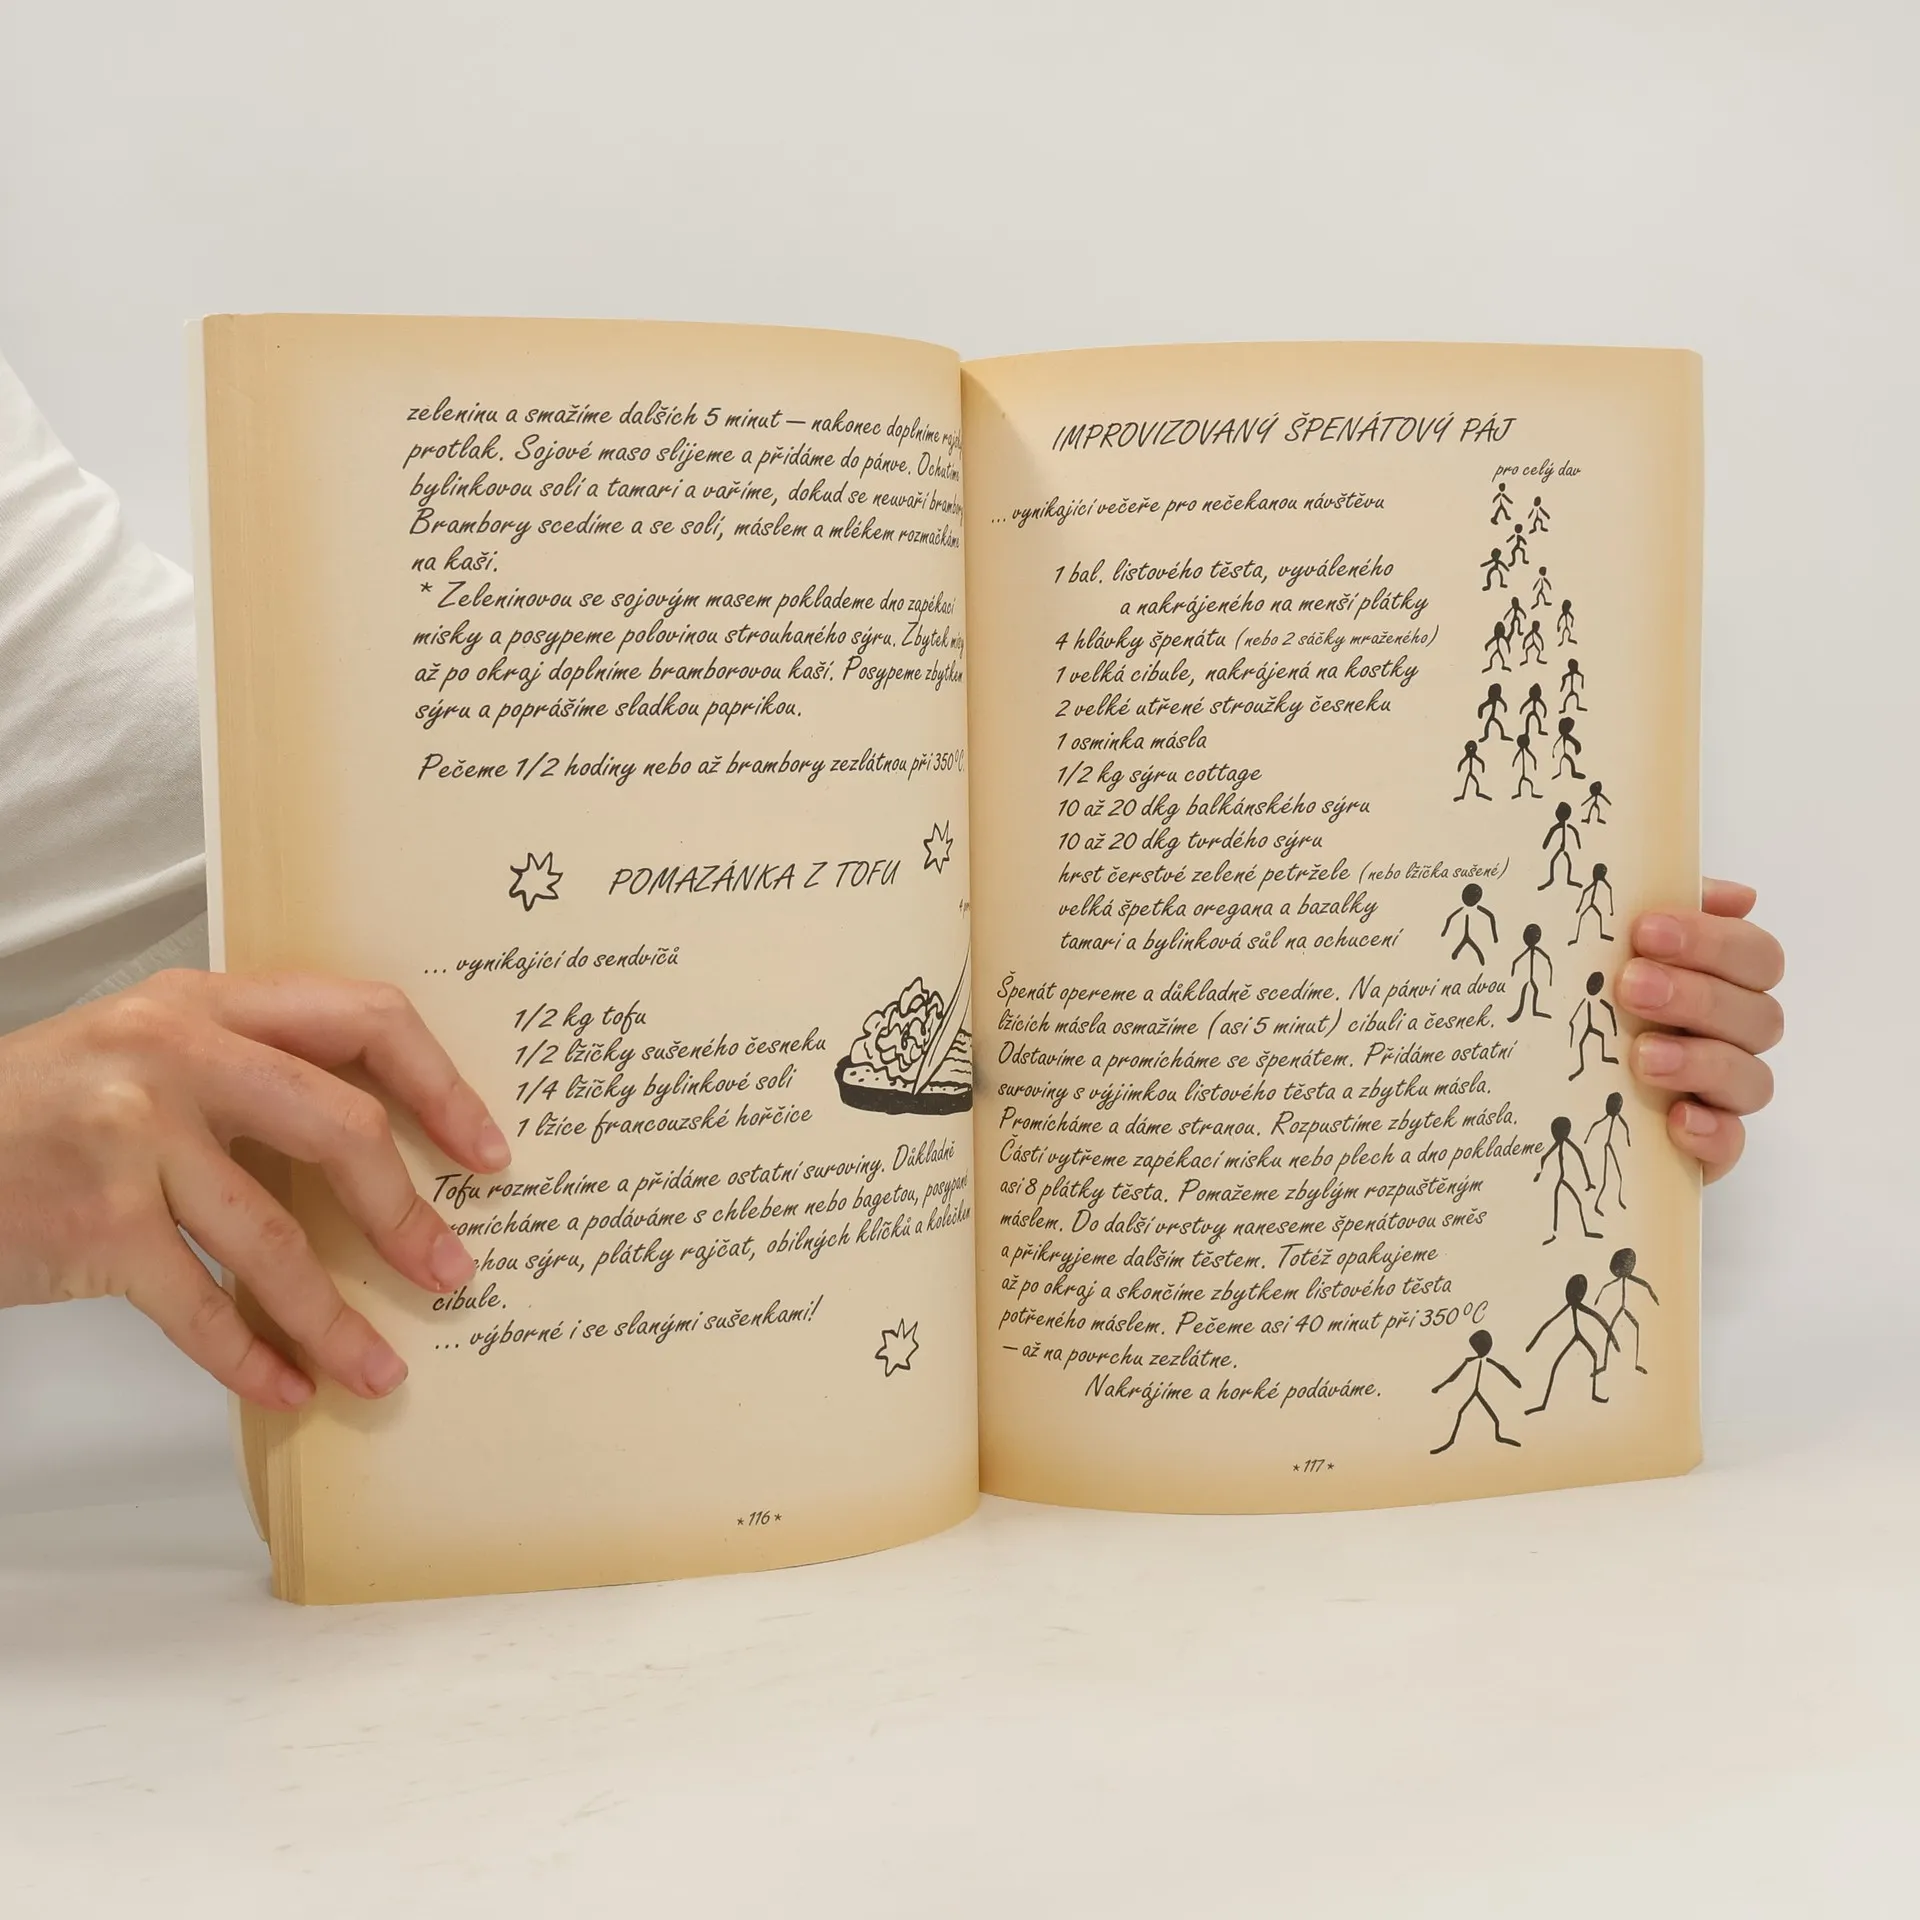 zeleninu a smažíme dalších 5 minut — nakonec doplníme
protlak. Sojové maso slijeme a přidáme do pánve. Ochutíme
bylinkovou solí a tamari a vaříme, dokud se neuvaří brambory
Brambory scedíme a se solí, máslem a mlékem rozmačkáme
na kaši.
* Zeleninovou se sojovým masem poklademe dno zapékací
misky a posypeme polovinou strouhaného sýru. Zbytek
až po okraj doplníme bramborovou kaší. Posypeme zbytkem
sýru a poprášíme sladkou paprikou.
Pečeme 1/2 hodiny nebo až brambory zezlátnou při 350°C
POMAZÁNKA Z TOFU
... vynikající do sendvičů
1/2 kg tofu
1/2 lžičky sušeného česneku
1/4 lžičky bylinkové soli
1 lžíce francouzské hořčice
Tofu rozmělníme a přidáme ostatní suroviny. Důkladně
romícháme a podáváme s chlebem nebo bagetou, posypané
chou sýru, plátky rajčat, obilných klíčků a kolečkem
cibule.
... výborné i se slanými sušenkami!
* 116 *
IMPROVIZOVANÝ ŠPENÁTOVÝ PÁJ
pro celý dav
... vynikající večeře pro nečekanou návštěvu
1 bal. listového těsta, vyváleného
a nakrájeného na menší plátky
4 hlávky špenátu (nebo 2 sáčky mraženého)
1 velká cibule, nakrájená na kostky
2 velké utřené stroužky česneku
1 osminka másla
1/2 kg sýru cottage
10 až 20 dkg balkánského sýru
10 až 20 dkg tvrdého sýru
hrst čerstvé zelené petržele (nebo lžička sušené)
velká špetka oregana a bazalky
tamari a bylinková sůl na ochucení
Špenát opereme a důkladně scedíme. Na pánvi na dvou
lžících másla osmažíme (asi 5 minut) cibuli a česnek.
Odstavíme a promícháme se špenátem. Přidáme ostatní
suroviny s výjimkou listového těsta a zbytku másla.
Promícháme a dáme stranou. Rozpustíme zbytek másla.
Částí vytřeme zapékací misku nebo plech a dno poklademe
asi 8 plátky těsta. Pomažeme zbylým rozpuštěným
máslem. Do další vrstvy naneseme špenátovou směs
a přikryjeme dalším těstem. Totéž opakujeme
až po okraj a skončíme zbytkem listového těsta
potřeného máslem. Pečeme asi 40 minut při 350°C
— až na povrchu zezlátne.
Nakrájíme a horké podáváme.
* 117 *